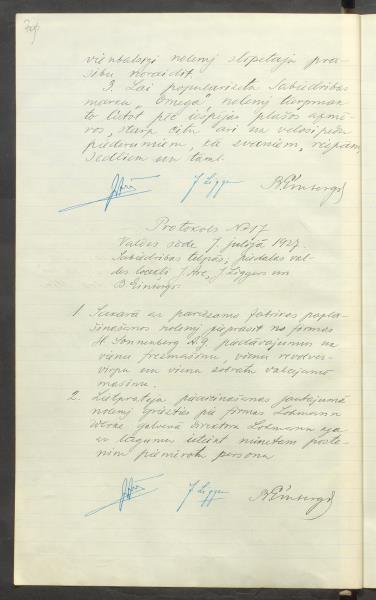 vienbalsīgi nolemj slopētāja pra-
sību noraidīt.
3. Lai popularizētu Sabiedrības
marku "Omega" nolemj turpmāk
to lietot pēc iespējas plašos apmē-
ros, starp citu arī uz velosipēdu
piederumiem, kā zvaniem,
sedliem un taml.
J. Liggers B. Einbergs
Protokols №17
Valdes sēde 7. jūlijā 1927.
Sabiedrības telpās; piedalās val-
des locekļi J. Are, J. Liggers un
B. Einbergs.
1. Sakarā ar paredzamo fabrikas papla-
šināšanos nolemj pieprasīt no firmas
H. Sonnenberg A.G. piedāvājumus uz
vienu frezmašīnu, vienu revolver-
virpu un vienu zobratu
mašīnu.
2. Lietpratēja pieaicināšanas jautājumā
nolemj griezties pie firmas Lohmann
Werke galvenā direktora Lohmann kga
ar lūgumu ieteikt minētam poste-
nim piemērotu personu
J. Liggers B. Einbergs